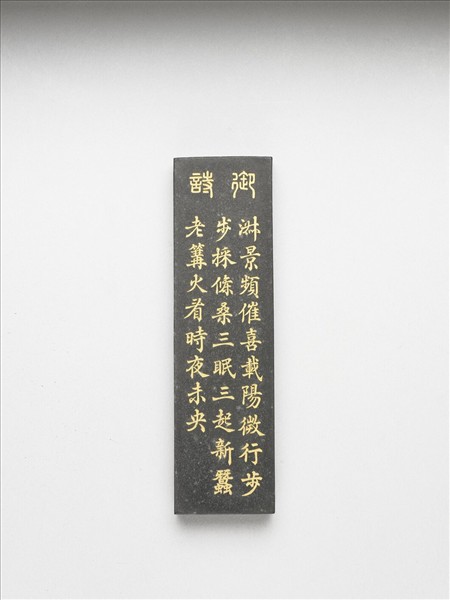 御詩
淑景頻催喜載陽微行步
步採條桑三眠三起新蠶
老篝火看時夜未央